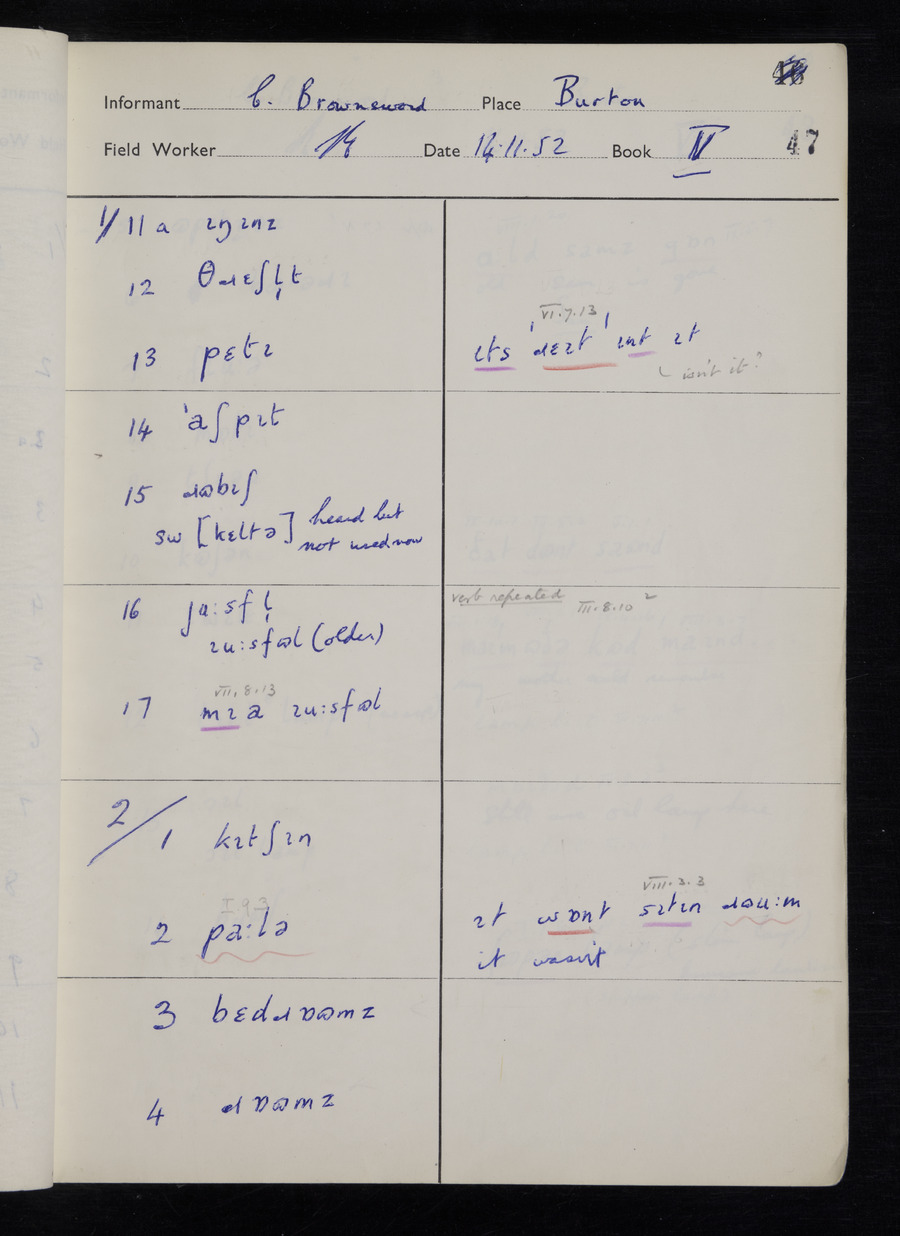 46
Informant C. Browneword Place Burton
Field Worker Date 14.11.52 Book V 47
1/ 11a ɪŋɪnz
12 θɹɛʃl̩t
13 pɛtɪ
VI.7.13
ɩts ˈɹɛɪtˈ ɪnt ɪt
isn't it?
14 ˈaʃpɪt
15 ɹɷbɪʃ
sw [kɛltə] heard but
not used now
16 ju:sfl̩
ɪu:sfɷl (older)
verb repeated III.8.10 2
VII.8.13
17 mɪ a ɪu:sfɷl
2/ 1 kɪtʃɪn
I 9 3
2 pa:lə
VIII.3.3
ɪt wɒnt sɪtɪn ɹɷu:m
it wasn't
3 bɛdɹɒɷmz
4 ɹɒɷmz